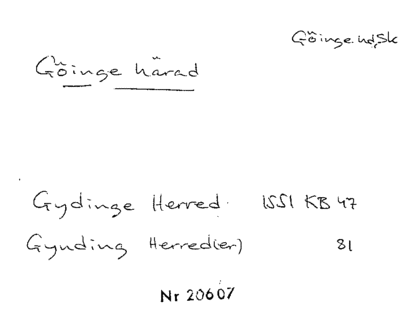 Göinge.hd,Sk
Göinge härad
Gydinge Herred 1551 KB 47
Gynding Herred(er) 81
Nr 20607